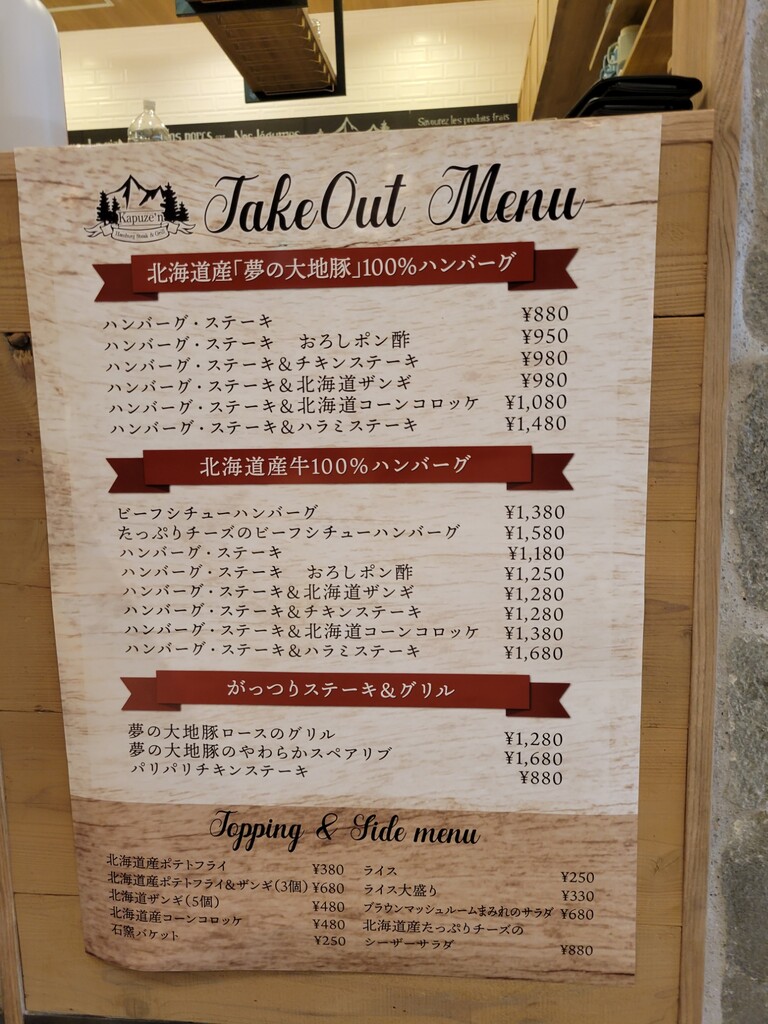 Nos porcs Nos légumes
Savourez les produits frais
Kapuze'n
Hamburg Steak & Grill
TakeOut Menu
北海道産「夢の大地豚」100%ハンバーグ
ハンバーグ・ステーキ ¥880
ハンバーグ・ステーキ おろしポン酢 ¥950
ハンバーグ・ステーキ&チキンステーキ ¥980
ハンバーグ・ステーキ&北海道ザンギ ¥980
ハンバーグ・ステーキ&北海道コーンコロッケ ¥1,080
ハンバーグ・ステーキ&ハラミステーキ ¥1,480
北海道産牛100%ハンバーグ
ビーフシチューハンバーグ ¥1,380
たっぷりチーズのビーフシチューハンバーグ ¥1,580
ハンバーグ・ステーキ ¥1,180
ハンバーグ・ステーキ おろしポン酢 ¥1,250
ハンバーグ・ステーキ&北海道ザンギ ¥1,280
ハンバーグ・ステーキ&チキンステーキ ¥1,280
ハンバーグ・ステーキ&北海道コーンコロッケ ¥1,380
ハンバーグ・ステーキ&ハラミステーキ ¥1,680
がっつりステーキ&グリル
夢の大地豚ロースのグリル ¥1,280
夢の大地豚のやわらかスペアリブ ¥1,680
パリパリチキンステーキ ¥880
Topping & Side menu
北海道産ポテトフライ ¥380
北海道産ポテトフライ&ザンギ(3個) ¥680
北海道ザンギ(5個) ¥480
北海道産コーンコロッケ ¥480
石窯バケット ¥250
ライス ¥250
ライス大盛り ¥330
ブラウンマッシュルームまみれのサラダ ¥680
北海道産たっぷりチーズの
シーザーサラダ ¥880